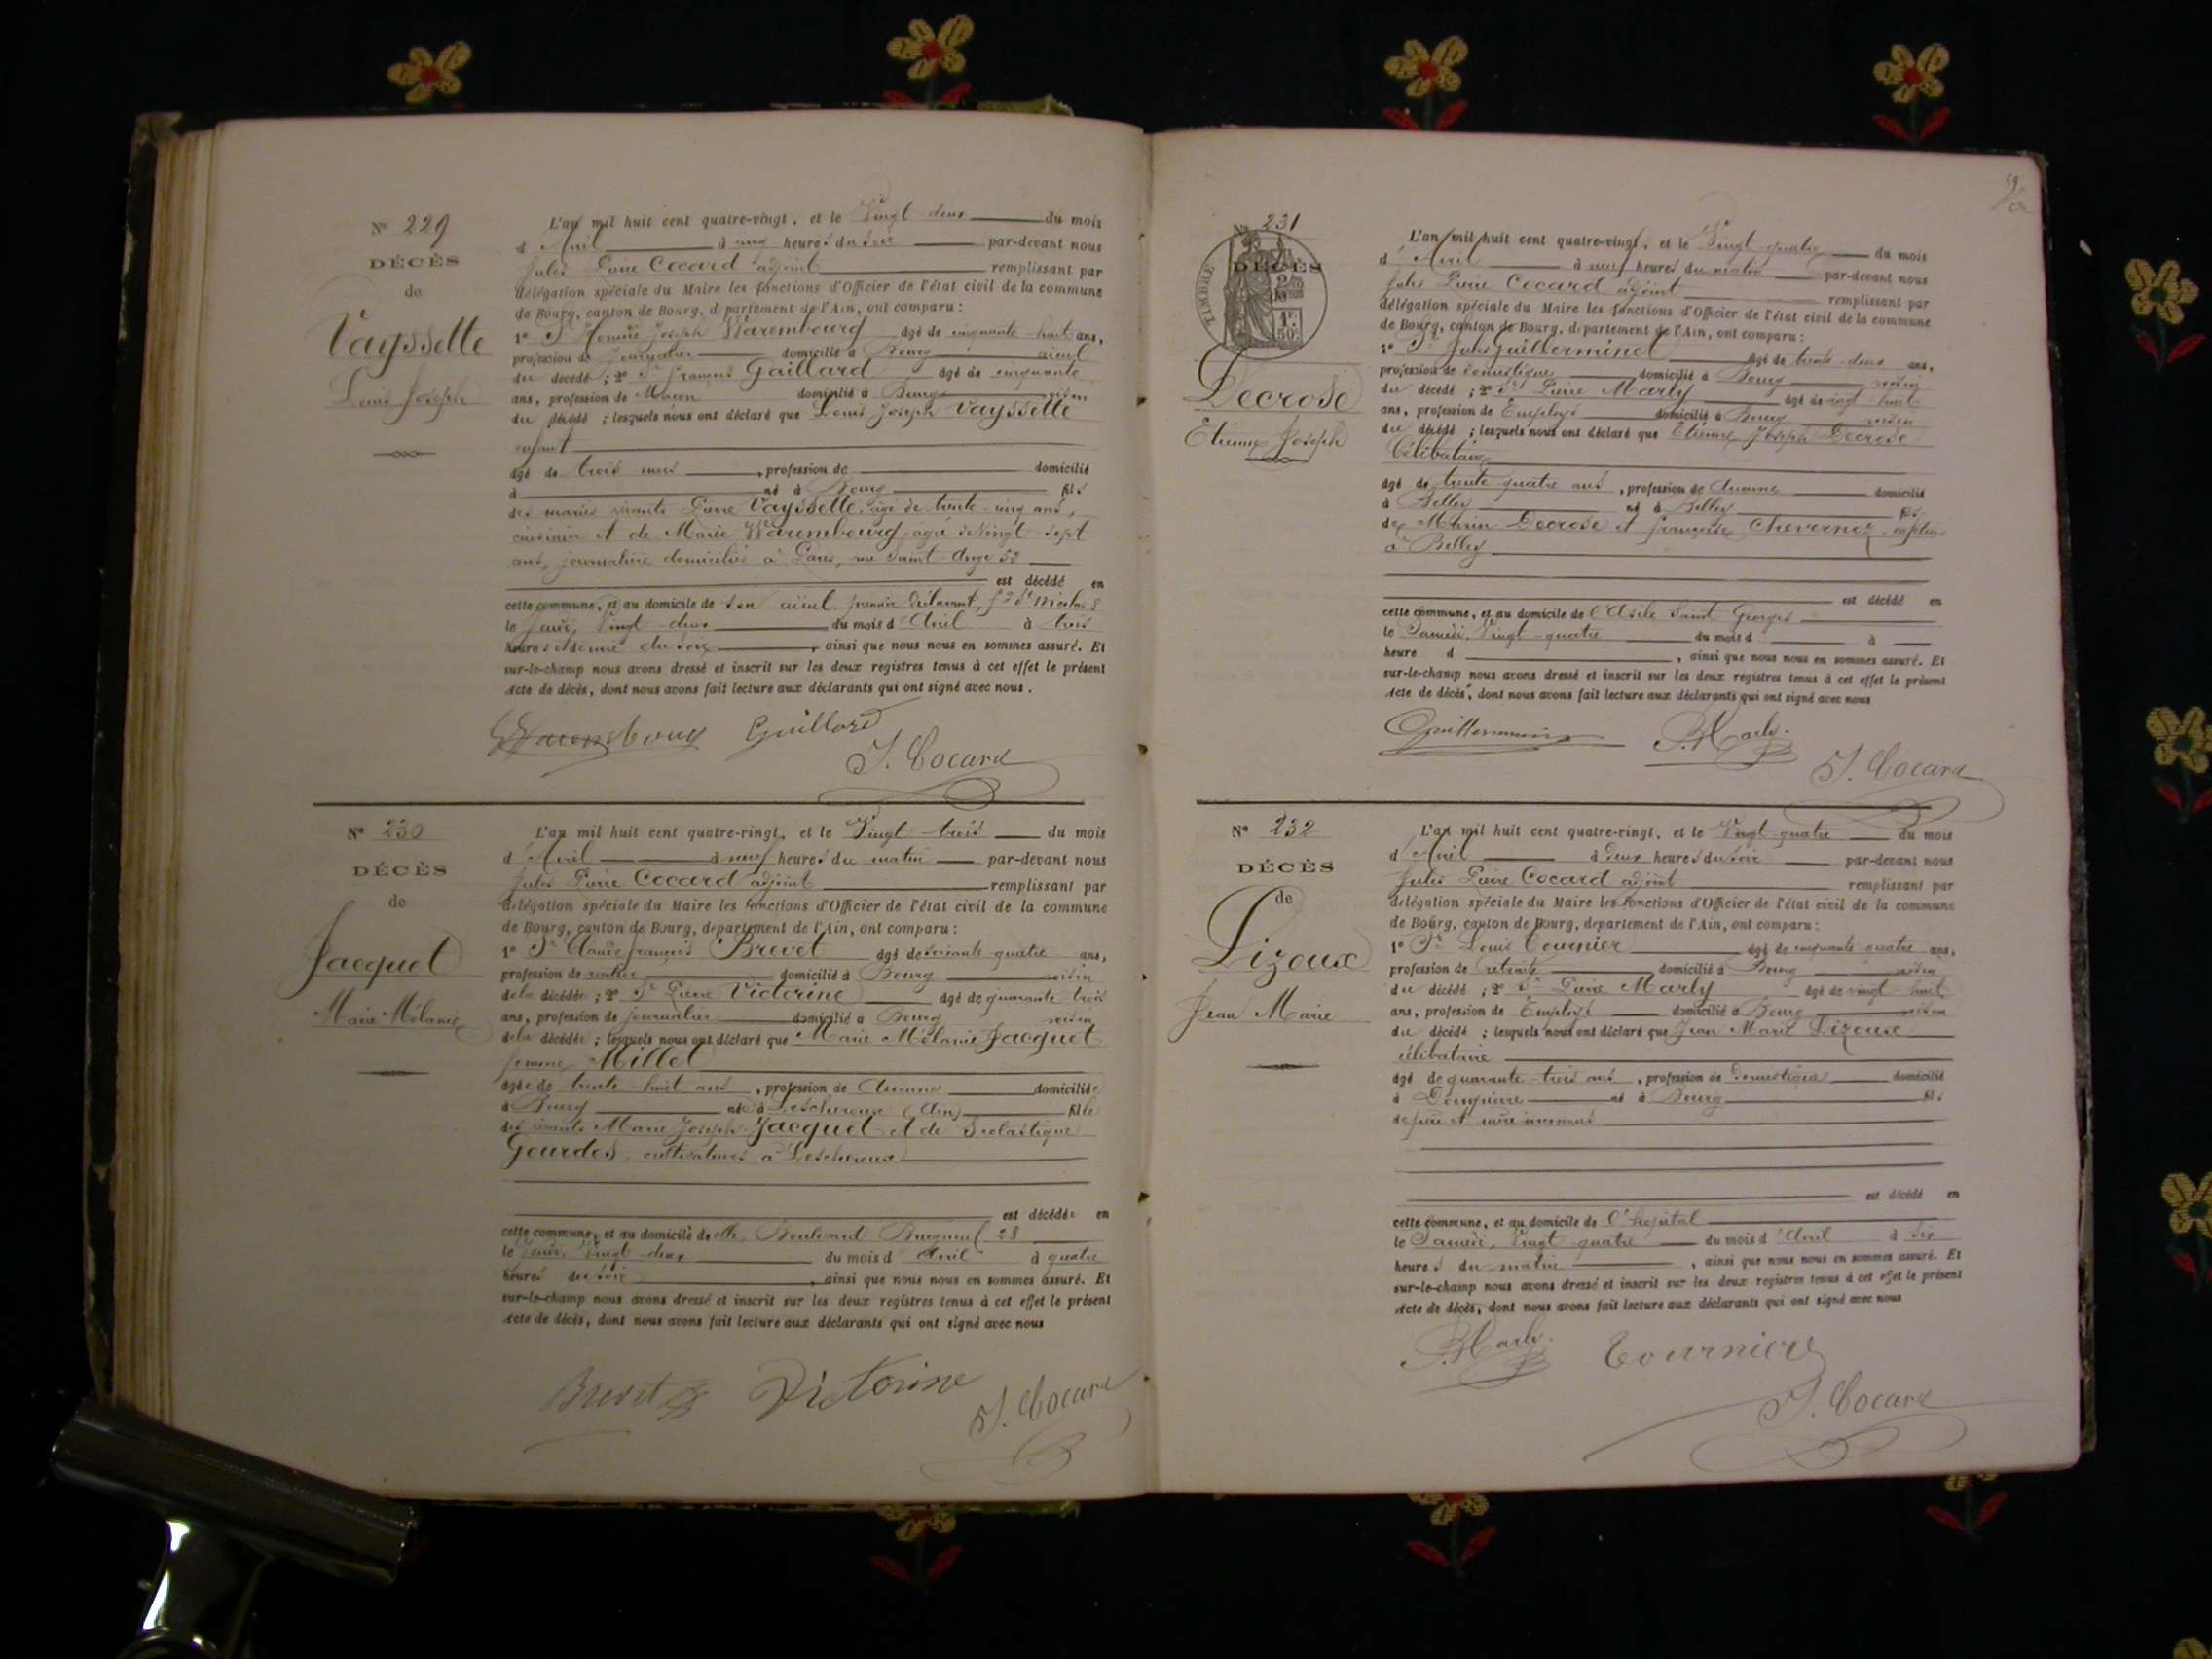 N° 229
DÉCÈS
de
Vayssette
Louis Joseph
L'an mil huit cent quatre-vingt, et le Vingt deux du mois
d'Avril à cinq heures du soir par-devant nous
Jules Pierre Cocard adjoint remplissant par
délégation spéciale du Maire les fonctions d'Officier de l'état civil de la commune
de Bourg, canton de Bourg, département de l'Ain, ont comparu :
1° Sr Joseph Warembourg âgé de cinquante-huit ans,
profession de Journalier domicilié à Bourg aïeul
du décédé ; 2° Sr françois Gaillard âgé de cinquante
ans, profession de Maçon domicilié à Bourg voisin
du décédé ; lesquels nous ont déclaré que Louis Joseph Vayssette
enfant
âgé de trois mois, profession de domicilié
à né à Bourg fils
des mariés vivants Pierre Vayssette, âgé de trente-cinq ans,
cuisinier et de Marie Warembourg, âgée de vingt-sept
ans, journalière domiciliés à Paris, rue Saint-Ange 52
est décédé en
cette commune, et au domicile de son aïeul, premier déclarant, fg St Nicolas 8
le Jeudi, Vingt-deux du mois d'Avril à trois
heures et demie du soir, ainsi que nous nous en sommes assuré. Et
sur-le-champ nous avons dressé et inscrit sur les deux registres tenus à cet effet le présent
Acte de décès, dont nous avons fait lecture aux déclarants qui ont signé avec nous.
Warembourg Guillard
J. Cocard
N° 230
DÉCÈS
de
Jacquet
Marie Mélanie
L'an mil huit cent quatre-vingt, et le Vingt trois du mois
d'Avril à neuf heures du matin par-devant nous
Jules Pierre Cocard adjoint remplissant par
délégation spéciale du Maire les fonctions d'Officier de l'état civil de la commune
de Bourg, canton de Bourg, département de l'Ain, ont comparu :
1° Sr Claude françois Brevet âgé de soixante-quatre ans,
profession de rentier domicilié à Bourg voisin
de la décédée ; 2° Sr Pierre Victorine âgé de quarante trois
ans, profession de journalier domicilié à Bourg voisin
de la décédée ; lesquels nous ont déclaré que Marie Mélanie Jacquet
femme Millet
âgée de trente-huit ans, profession de Aucune domiciliée
à Bourg née à Lescheroux (Ain) fille
des vivants Marie Joseph Jacquet et de Scolastique
Gourdes, cultivateurs à Lescheroux
est décédée en
cette commune, et au domicile de elle, Boulevard 28
le Jeudi, Vingt-deux du mois d'Avril à quatre
heures du soir, ainsi que nous nous en sommes assuré. Et
sur-le-champ nous avons dressé et inscrit sur les deux registres tenus à cet effet le présent
Acte de décès, dont nous avons fait lecture aux déclarants qui ont signé avec nous
Brevet Victorine
J. Cocard
N° 231
TIMBRE
DÉCÈS
1F.
50c.
Decrose
Etienne Joseph
L'an mil huit cent quatre-vingt, et le Vingt-quatre du mois
d'Avril à neuf heures du matin par-devant nous
Jules Pierre Cocard adjoint remplissant par
délégation spéciale du Maire les fonctions d'Officier de l'état civil de la commune
de Bourg, canton de Bourg, département de l'Ain, ont comparu :
1° Sr Jules Guillerminet âgé de trente-deux ans,
profession de domestique domicilié à Bourg voisin
du décédé ; 2° Sr Pierre Marly âgé de vingt huit
ans, profession de Employé domicilié à Bourg voisin
du décédé ; lesquels nous ont déclaré que Etienne Joseph Decrose
Célibataire
âgé de trente-quatre ans, profession de Aucune domicilié
à Belley né à Belley fils
de Decrose et françoise Chevernoz
à Belley
est décédé en
cette commune, et au domicile de l'Asile Saint Georges
le Samedi, Vingt-quatre du mois d à
heure d , ainsi que nous nous en sommes assuré. Et
sur-le-champ nous avons dressé et inscrit sur les deux registres tenus à cet effet le présent
Acte de décès, dont nous avons fait lecture aux déclarants qui ont signé avec nous
Guillerminet P. Marly
J. Cocard
N° 232
DÉCÈS
de
Lizoux
Jean Marie
L'an mil huit cent quatre-vingt, et le Vingt-quatre du mois
d'Avril à deux heures du soir par-devant nous
Jules Pierre Cocard adjoint remplissant par
délégation spéciale du Maire les fonctions d'Officier de l'état civil de la commune
de Bourg, canton de Bourg, département de l'Ain, ont comparu :
1° Sr Louis Tournier âgé de cinquante-quatre ans,
profession de retraité domicilié à Bourg voisin
du décédé ; 2° Sr Pierre Marly âgé de vingt-huit
ans, profession de Employé domicilié à Bourg voisin
du décédé ; lesquels nous ont déclaré que Jean Marie Lizoux
célibataire
âgé de quarante-trois ans, profession de Domestique domicilié
à Dompierre né à Bourg fils
de père et mère inconnus
est décédé en
cette commune, et au domicile de l'hôpital
le Samedi, Vingt-quatre du mois d'Avril à dix
heures du matin, ainsi que nous nous en sommes assuré. Et
sur-le-champ nous avons dressé et inscrit sur les deux registres tenus à cet effet le présent
Acte de décès, dont nous avons fait lecture aux déclarants qui ont signé avec nous
P. Marly Tournier
J. Cocard